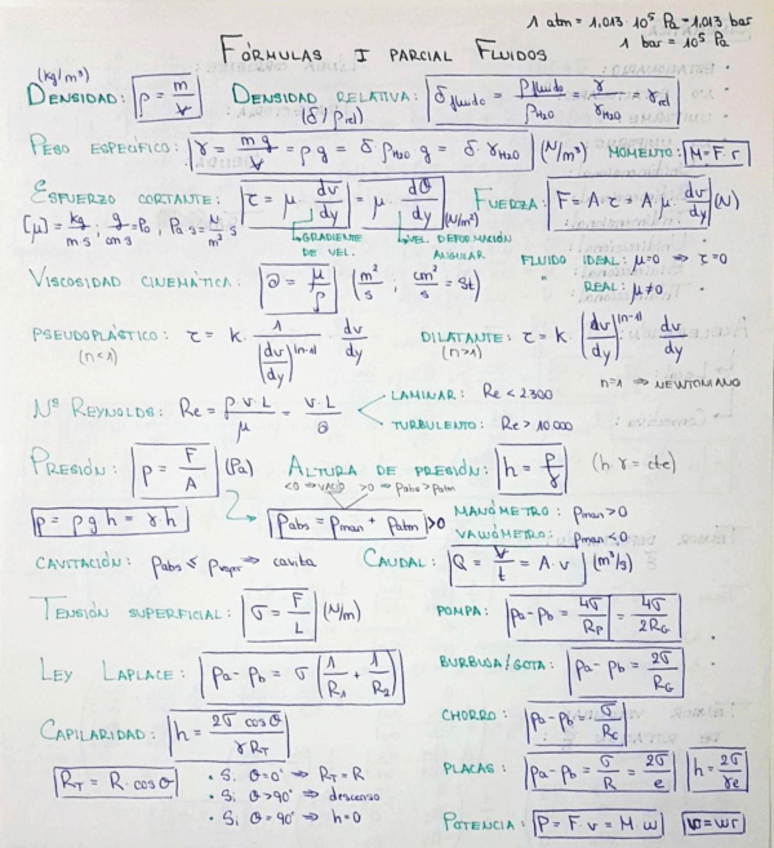 1 atm = 1,013·10⁵ Pa = 1,013 bar
1 bar = 10⁵ Pa
FÓRMULAS I PARCIAL FLUIDOS
(kg/m³)
DENSIDAD: ρ = m/V DENSIDAD RELATIVA: (δ/ρrel) δfluido = ρfluido/ρH₂O = γ/γH₂O = γrel
PESO ESPECÍFICO: γ = mg/V = ρg = δ·ρH₂O g = δ·γH₂O (N/m³) MOMENTO: M=F·r
ESFUERZO CORTANTE: τ = μ·dv/dy = μ·dθ/dy (N/m²) FUERZA: F=A·τ=A·μ·dv/dy (N)
[μ] = kg/m·s ; g/cm·s = Po ; Pa·s = N/m²·s
↳ GRADIENTE DE VEL. ↳ VEL. DEFORMACIÓN ANGULAR
FLUIDO IDEAL: μ=0 ⇒ τ=0
" REAL: μ≠0
VISCOSIDAD CINEMÁTICA: ∂ = μ/ρ (m²/s ; cm²/s = St)
PSEUDOPLÁSTICO: (n<1) τ = k·1/(dv/dy)^(n-1)·dv/dy DILATANTE: (n>1) τ = k·(dv/dy)^(n-1) dv/dy
n=1 ⇒ NEWTONIANO
Nº REYNOLDS: Re = ρ·v·L/μ = v·L/∂
LAMINAR: Re < 2.300
TURBULENTO: Re > 10.000
PRESIÓN: p = F/A (Pa) ALTURA DE PRESIÓN: h = p/γ (h γ = cte)
<0 ⇒ VACÍO >0 ⇒ pabs>patm
p = ρgh = γ·h Pabs = Pman + Patm >0
MANÓMETRO: pman>0
VACUÓMETRO: pman<0
CAVITACIÓN: pabs ≤ pvapor ⇒ cavita CAUDAL: Q = V/t = A·v (m³/s)
TENSIÓN SUPERFICIAL: σ = F/L (N/m) POMPA: pa-pb = 4σ/RP = 4σ/2RG
LEY LAPLACE: pa-pb = σ(1/R1 + 1/R2) BURBUJA/GOTA: pa-pb = 2σ/RG
CAPILARIDAD: h = 2σ cosθ/γRT CHORRO: pa-pb = σ/RC
RT = R·cosθ
• Si θ=0° ⇒ RT=R
• Si θ>90° ⇒ descenso
• Si θ=90° ⇒ h=0
PLACAS: pa-pb = σ/R = 2σ/e h = 2σ/γe
POTENCIA: P=F·v=M·w v=wr